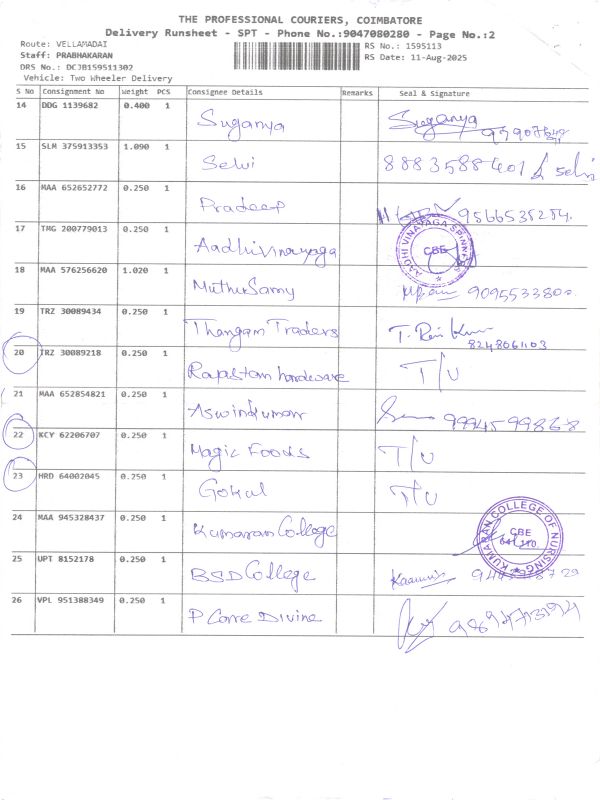 THE PROFESSIONAL COURIERS, COIMBATORE
Delivery Runsheet - SPT - Phone No.:9047080280 - Page No.:2
Route: VELLAMADAI RS No.: 1595113
Staff: PRABHAKARAN RS Date: 11-Aug-2025
DRS No.: DCJB159511302
Vehicle: Two Wheeler Delivery
S No Consignment No Weight PCS Consignee Details Remarks Seal & Signature
14 DDG 1139682 0.400 1 Suganya Suganya
15 SLM 375913353 1.090 1 Selvi 8883588401 Selvi
16 MAA 652652772 0.250 1 Pradeep 9566535254
17 TMG 200779013 0.250 1 Aadhivinayaga AADHI VINAYAGA SPINNERS CBE
18 MAA 576256620 1.020 1 MuthuSamy 9095533800
19 TRZ 30089434 0.250 1 Thangam Traders
8248061103
20 TRZ 30089218 0.250 1 Rajastam hardware T/U
21 MAA 652854821 0.250 1 Aswinkumar 9994599868
22 KCY 62206707 0.250 1 Magic Foods T/U
23 HRD 64002045 0.250 1 Gokul T/U
24 MAA 945328437 0.250 1 Kumaran College KUMARAN COLLEGE OF NURSING CBE
25 UPT 8152178 0.250 1 BSD College
26 VPL 951388349 0.250 1 P Corre Divine